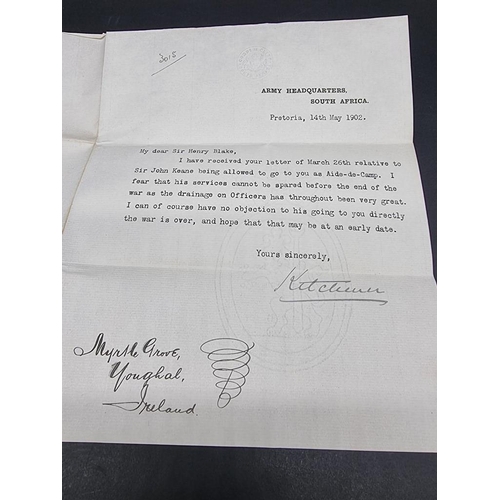 3015
ARMY HEADQUARTERS,
SOUTH AFRICA.
Pretoria, 14th May 1902.
My dear Sir Henry Blake,
I have received your letter of March 26th relative to
Sir John Keane being allowed to go to you as Aide-de-Camp. I
fear that his services cannot be spared before the end of the
war as the drainage on Officers has throughout been very great.
I can of course have no objection to his going to you directly
the war is over, and hope that that may be at an early date.
Yours sincerely,
Kitchener
Myrtle Grove,
Youghal,
Ireland.